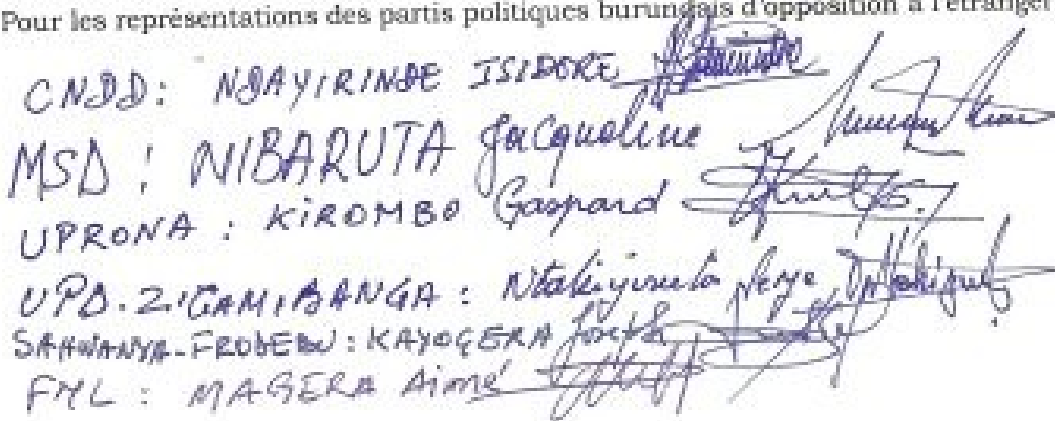 Pour les représentations des partis politiques burundais d'opposition à l'étranger
CNDD: NDAYIRINDE ISIDORE
MSD : NIBARUTA Jacqueline
UPRONA : KIROMBO Gaspard
UPD.ZIGAMIBANGA : Ntakiyiruta Serge
SAHWANYA-FRODEBU : KAYOGERA Joseph
FNL : MAGERA Aimé